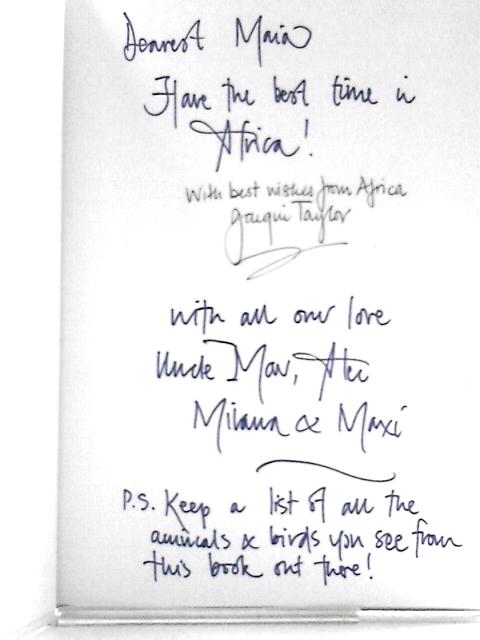 Dearest Maia
Have the best time in
Africa!
With best wishes from Africa
Jacqui Taylor
with all our love
Uncle Mav,
Milana & Maxi
P.S. Keep a list of all the
animals & birds you see from
this book out there!